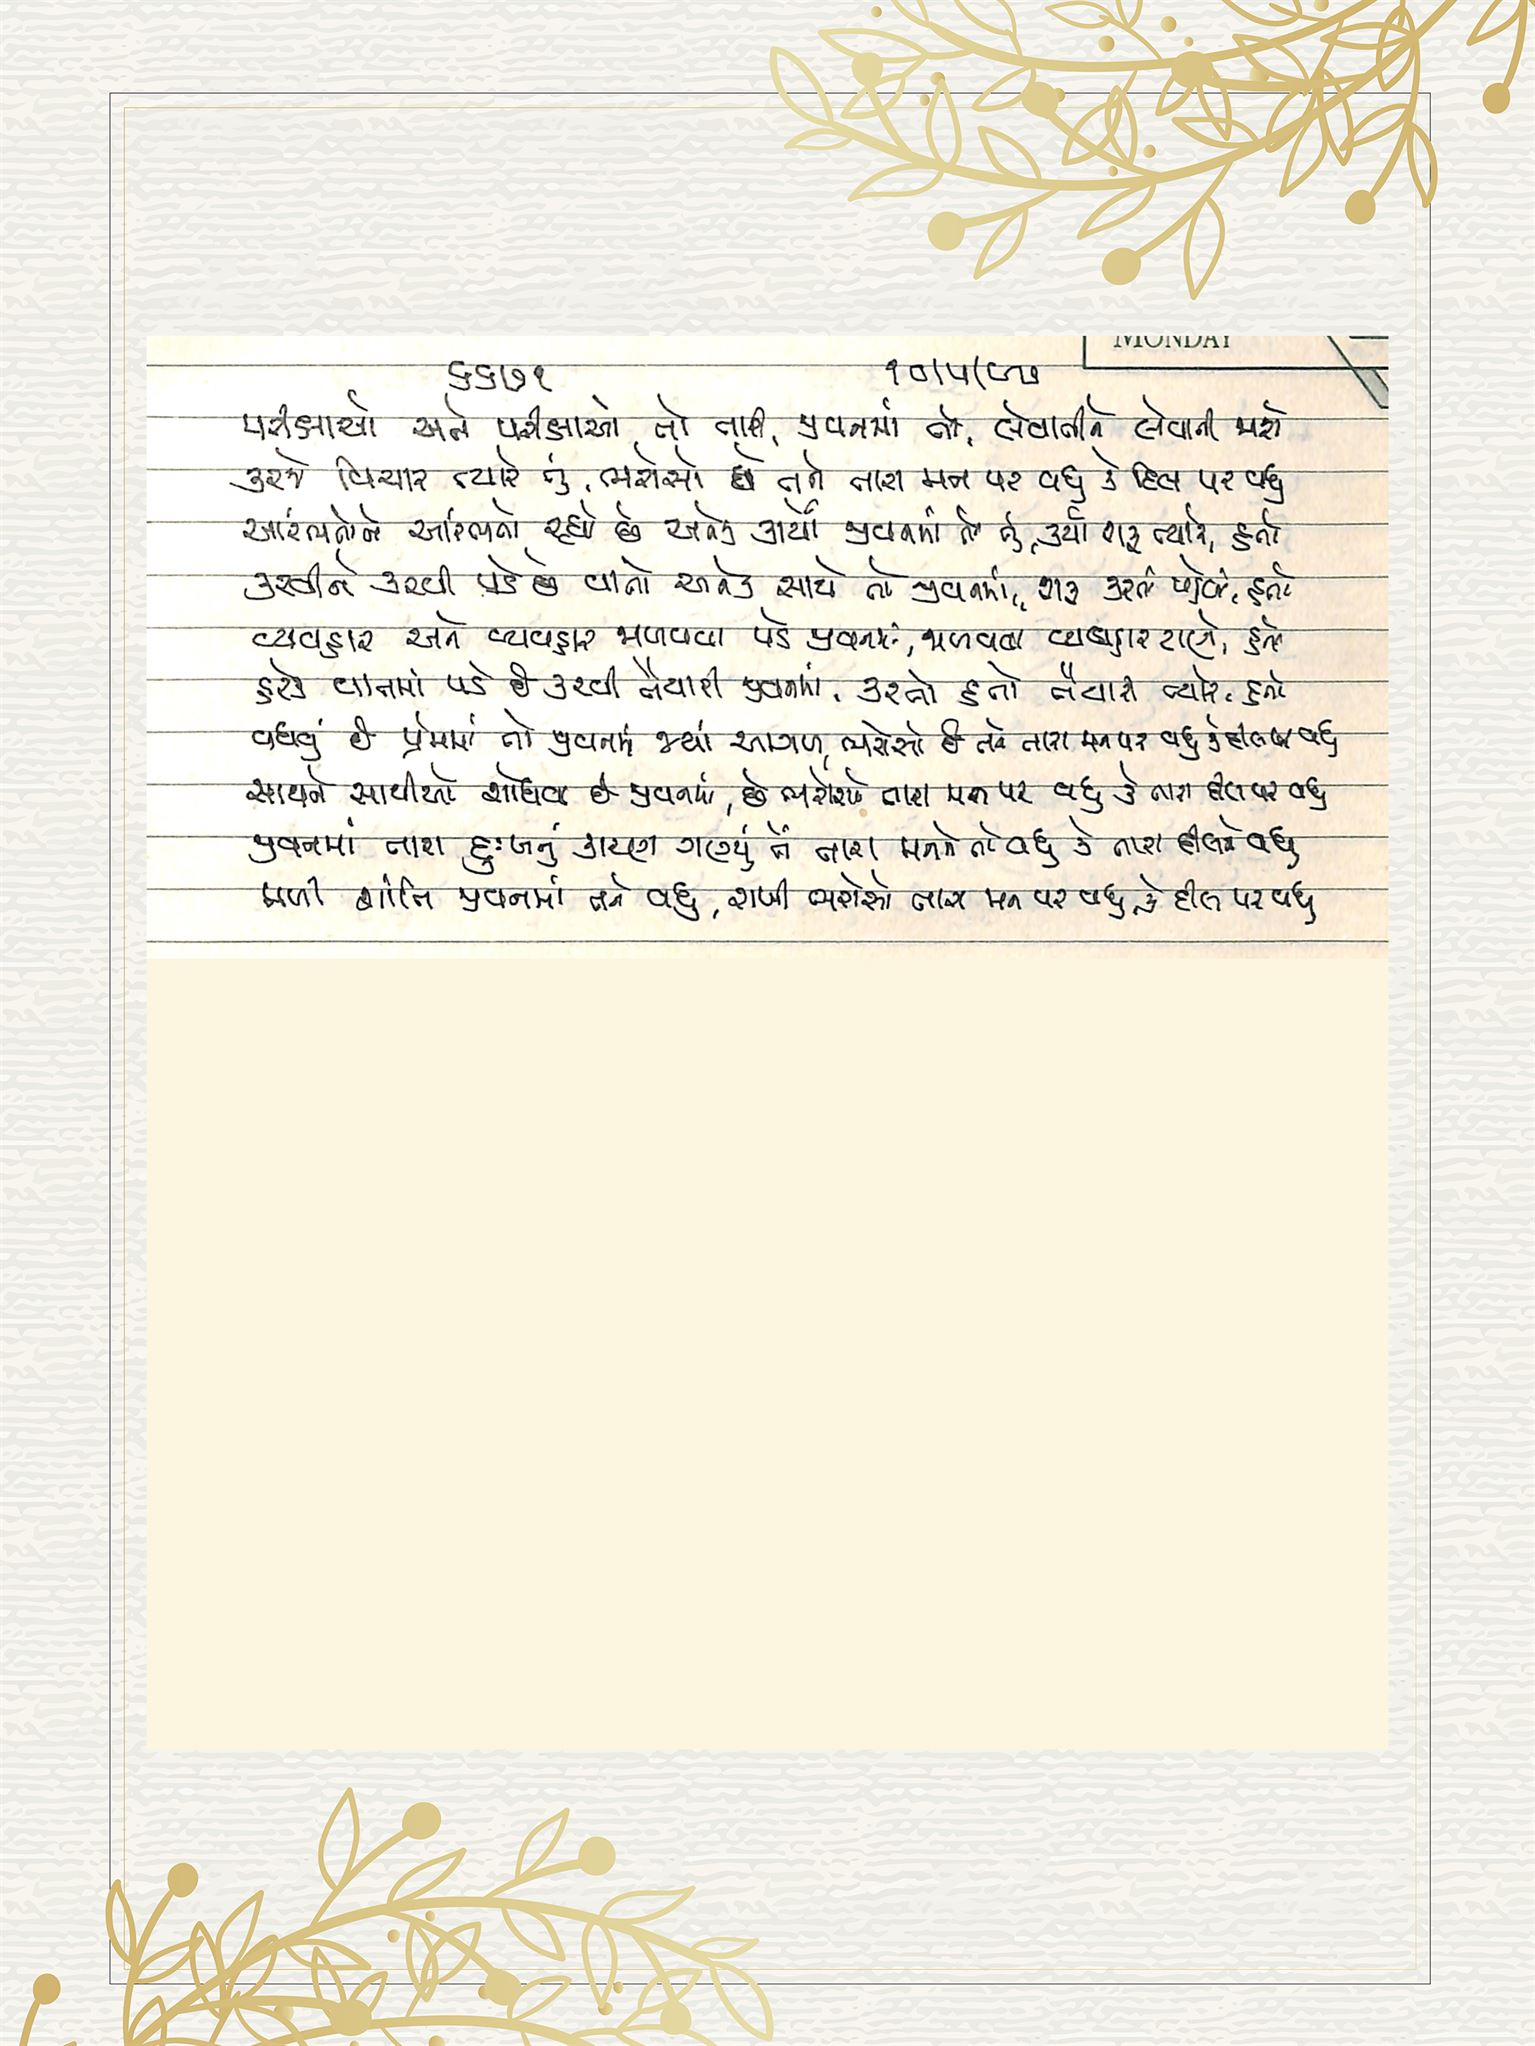 MONDAY
૬૬૭૧ ૧૦/૫/૯૭
પરીક્ષાઓ અને પરીક્ષાઓ તો તારી, જીવનમાં તો, લેવાતીને લેવાતી જાશે
કરજે વિચાર ત્યારે તું, ભરોસો છે તને તારા મન પર વધુ કે દિલ પર વધુ
આરંભતોને આરંભતો રહ્યો છે અનેક કાર્યો જીવનમાં તો તું, કર્યા શરૂ ત્યારે, હતો
કરવીને કરવી પડે છે વાતો અનેક સાથે તો જીવનમાં, શરૂ કરતા પહેલાં, હતો
વ્યવહાર અને વ્યવહાર જાળવવા પડે જીવનમાં, જાળવવા વ્યવહાર ટાણે, હતો
હરેક વાતમાં પડે છે કરવી તૈયારી જીવનમાં, કરતો હતો તૈયારી ત્યારે, હતો
વધવું છે પ્રેમમાં તો જીવનમાં જ્યાં આગળ, ભરોસો છે તને તારા મન પર વધુ કે દીલ પર વધુ
સાથને સાથીઓ શોધવા છે જીવનમાં, છે ભરોસો તારા મન પર વધુ કે તારા દીલ પર વધુ
જીવનમાં તારા દુઃખનું કારણ ગણ્યું તેં તારા મનને તો વધુ કે તારા દીલને વધુ
મળી શાંતિ જીવનમાં તને વધુ, રાખી ભરોસો તારા મન પર વધુ, કે દીલ પર વધુ